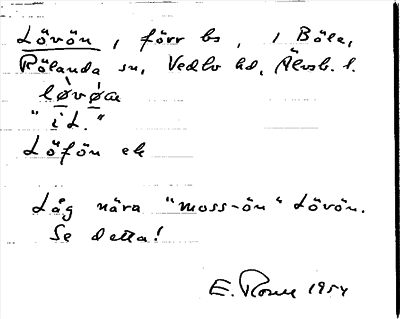 Lövön, förr bs, i Böle,
Rölanda sn, Vedbo hd, Älvsb. l.
lø̀vǿa
"iL."
Löfön ek
Låg nära "moss-ön" Lövön.
Se detta!
E. 1954